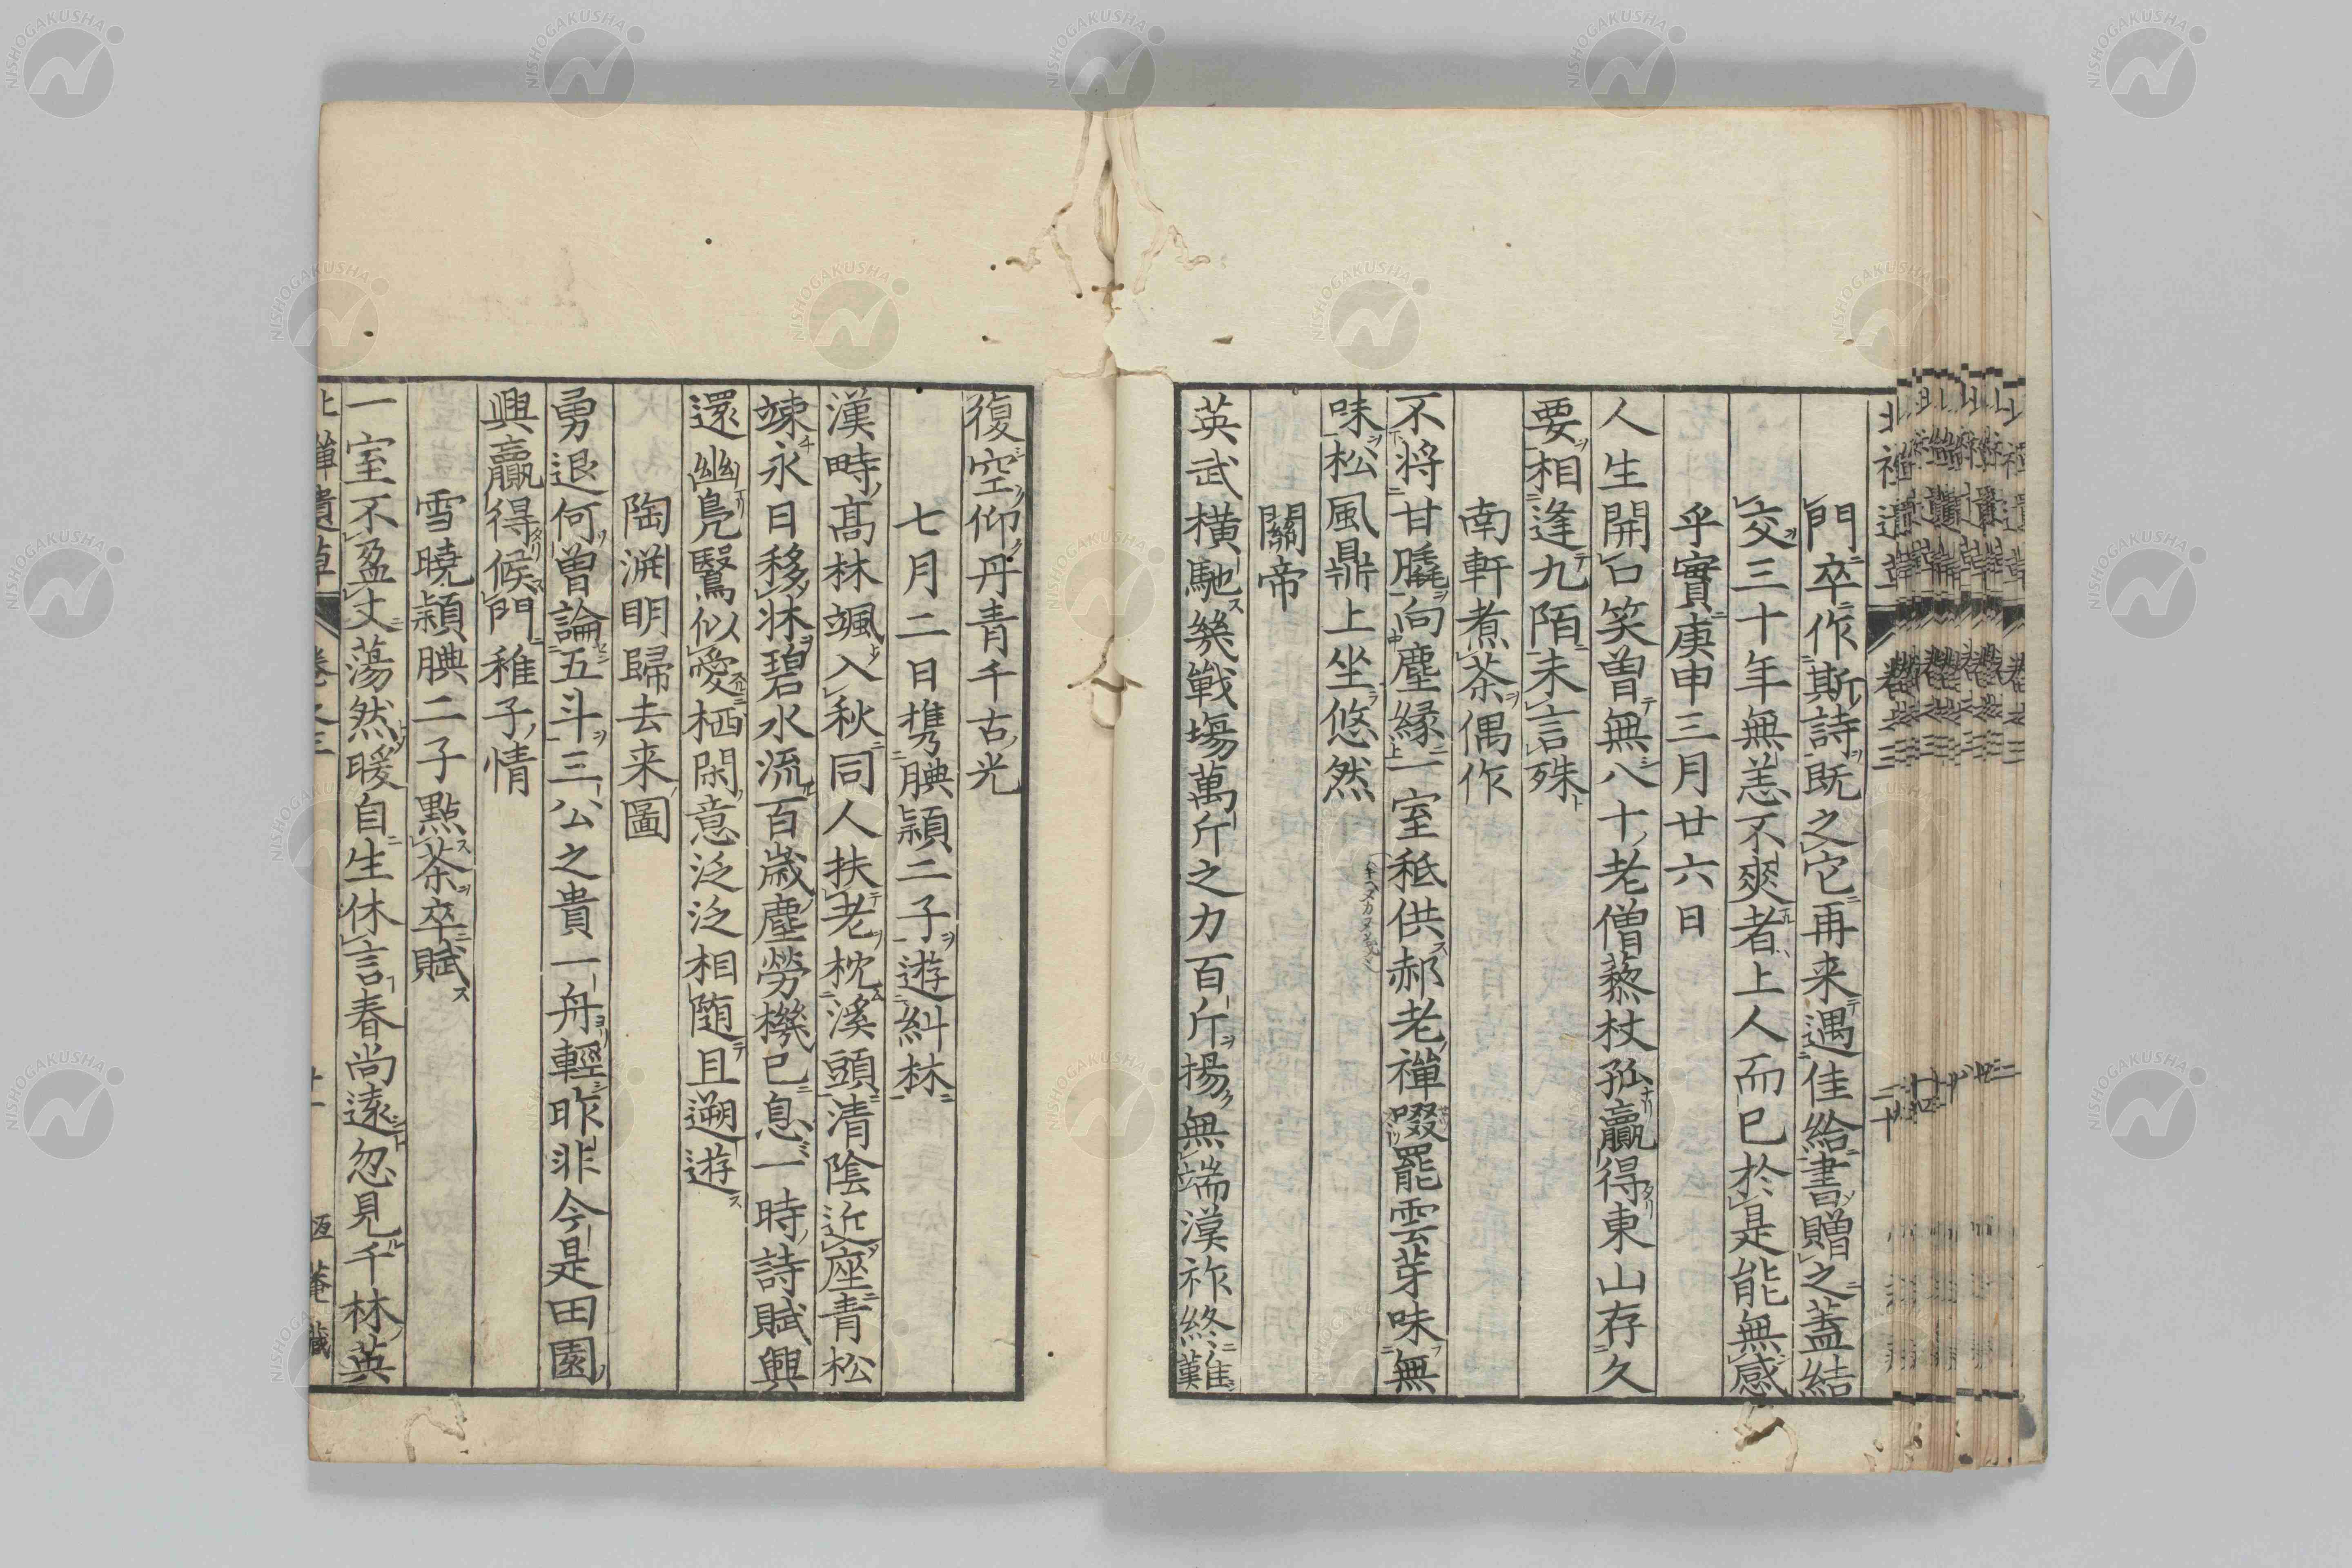 門卒作斯詩既之它再来遇佳給書贈之蓋結
交三十年無恙不爽者上人而已於是能無感
乎實庚申三月廿六日
人生開口笑曽無八十老僧藜杖孤贏得東山存久
要相逢九陌未言殊
南軒煮茶偶作
不将甘脆向塵縁一室秪供郝老禅啜罷雲芽味無
味松風鼎上坐悠然
關帝
英武横馳幾戦場萬斤之力百斤揚無端漢祚終難
復空仰丹青千古光
七月二日携腆穎二子遊糾林
漢畤髙林颯入秋同人扶老枕溪頭清陰近座青松
竦永日移牀碧水流百歳塵勞機已息一時詩賦興
還幽鳬鷖似愛栖閑意泛泛相随且遡遊
陶淵明歸去来圖
勇退何曽論五斗三公之貴一舟輕昨非今是田園
興贏得候門稚子情
雪曉穎腆二子點茶卒賦
一室不盈丈蕩然暖自生休言春尚遠忽見千林英